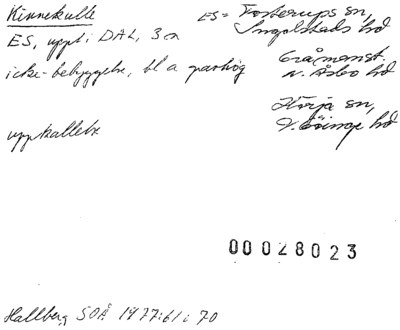 Kinnekulle
ES = Fosterups sn,
Ingelstads hd
ES, uppt i DAL, 3 a
icke-bebyggelse, bl a gravhög
Gråmanst.
N. Åsbo hd
Hörja sn,
V. Göinge hd
uppkallelse
00028023
Hallberg SOÅ 1977:61 i 70